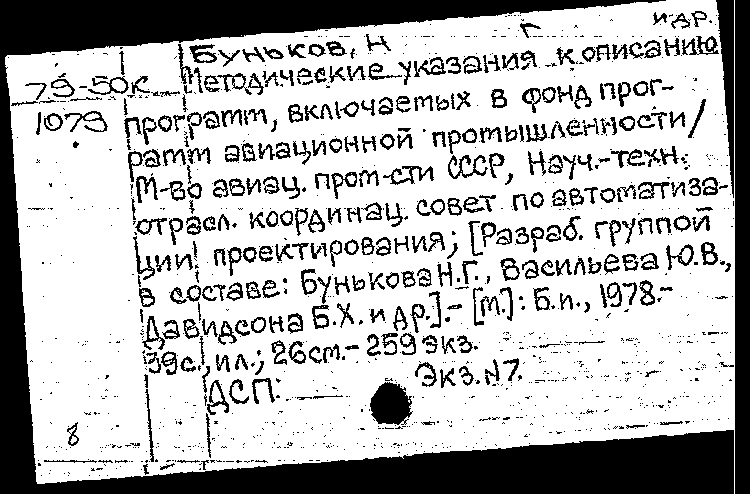 Буньков, Н Г и др.
79-50к Методические указания к описанию
1079 программ, включаемых в фонд прог-
рамм авиационной промышленности/
М-во авиац. пром-сти СССР, Науч.-техн.
отрасл. координац. совет по автоматиза-
ции проектирования; [Разраб. группой
в составе: Бунькова Н.Г., Васильева Ю.В.,
Давидсона Б.Х. и др.].- [М.]: Б.и., 1978.-
39с., ил.; 26см.- 259 экз.
ДСП. Экз.N7.
8